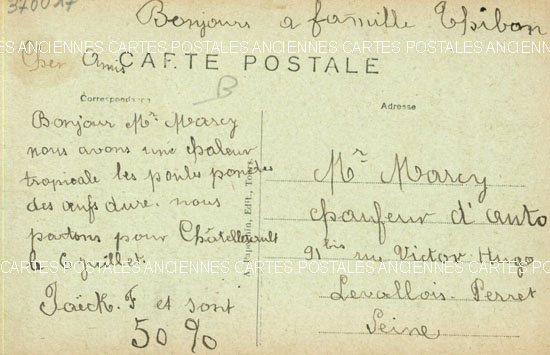 370017
Bonjours a famille Thibon
ANCIENNES CARTES POSTALES ANCIENNES CARTES POSTALES ANCIENNES CARTES POSTALES
Cher Amis
CARTE POSTALE
B
Correspondance
Adresse
Bonjour Mr Marcy
nous avons une chaleur
tropicale les poules pondes
des œufs dure. nous
partons pour Châtellerault
le 6 juillet.
Jaëck. F et sont
50 %
Édit., Tours
Mr Marcy
chaufeur d'auto
91 bis rue Victor Hugo
Levallois-Perret
Seine
CARTES POSTALES ANCIENNES CARTES POSTALES ANCIENNES CARTES POSTALES ANCIENNES